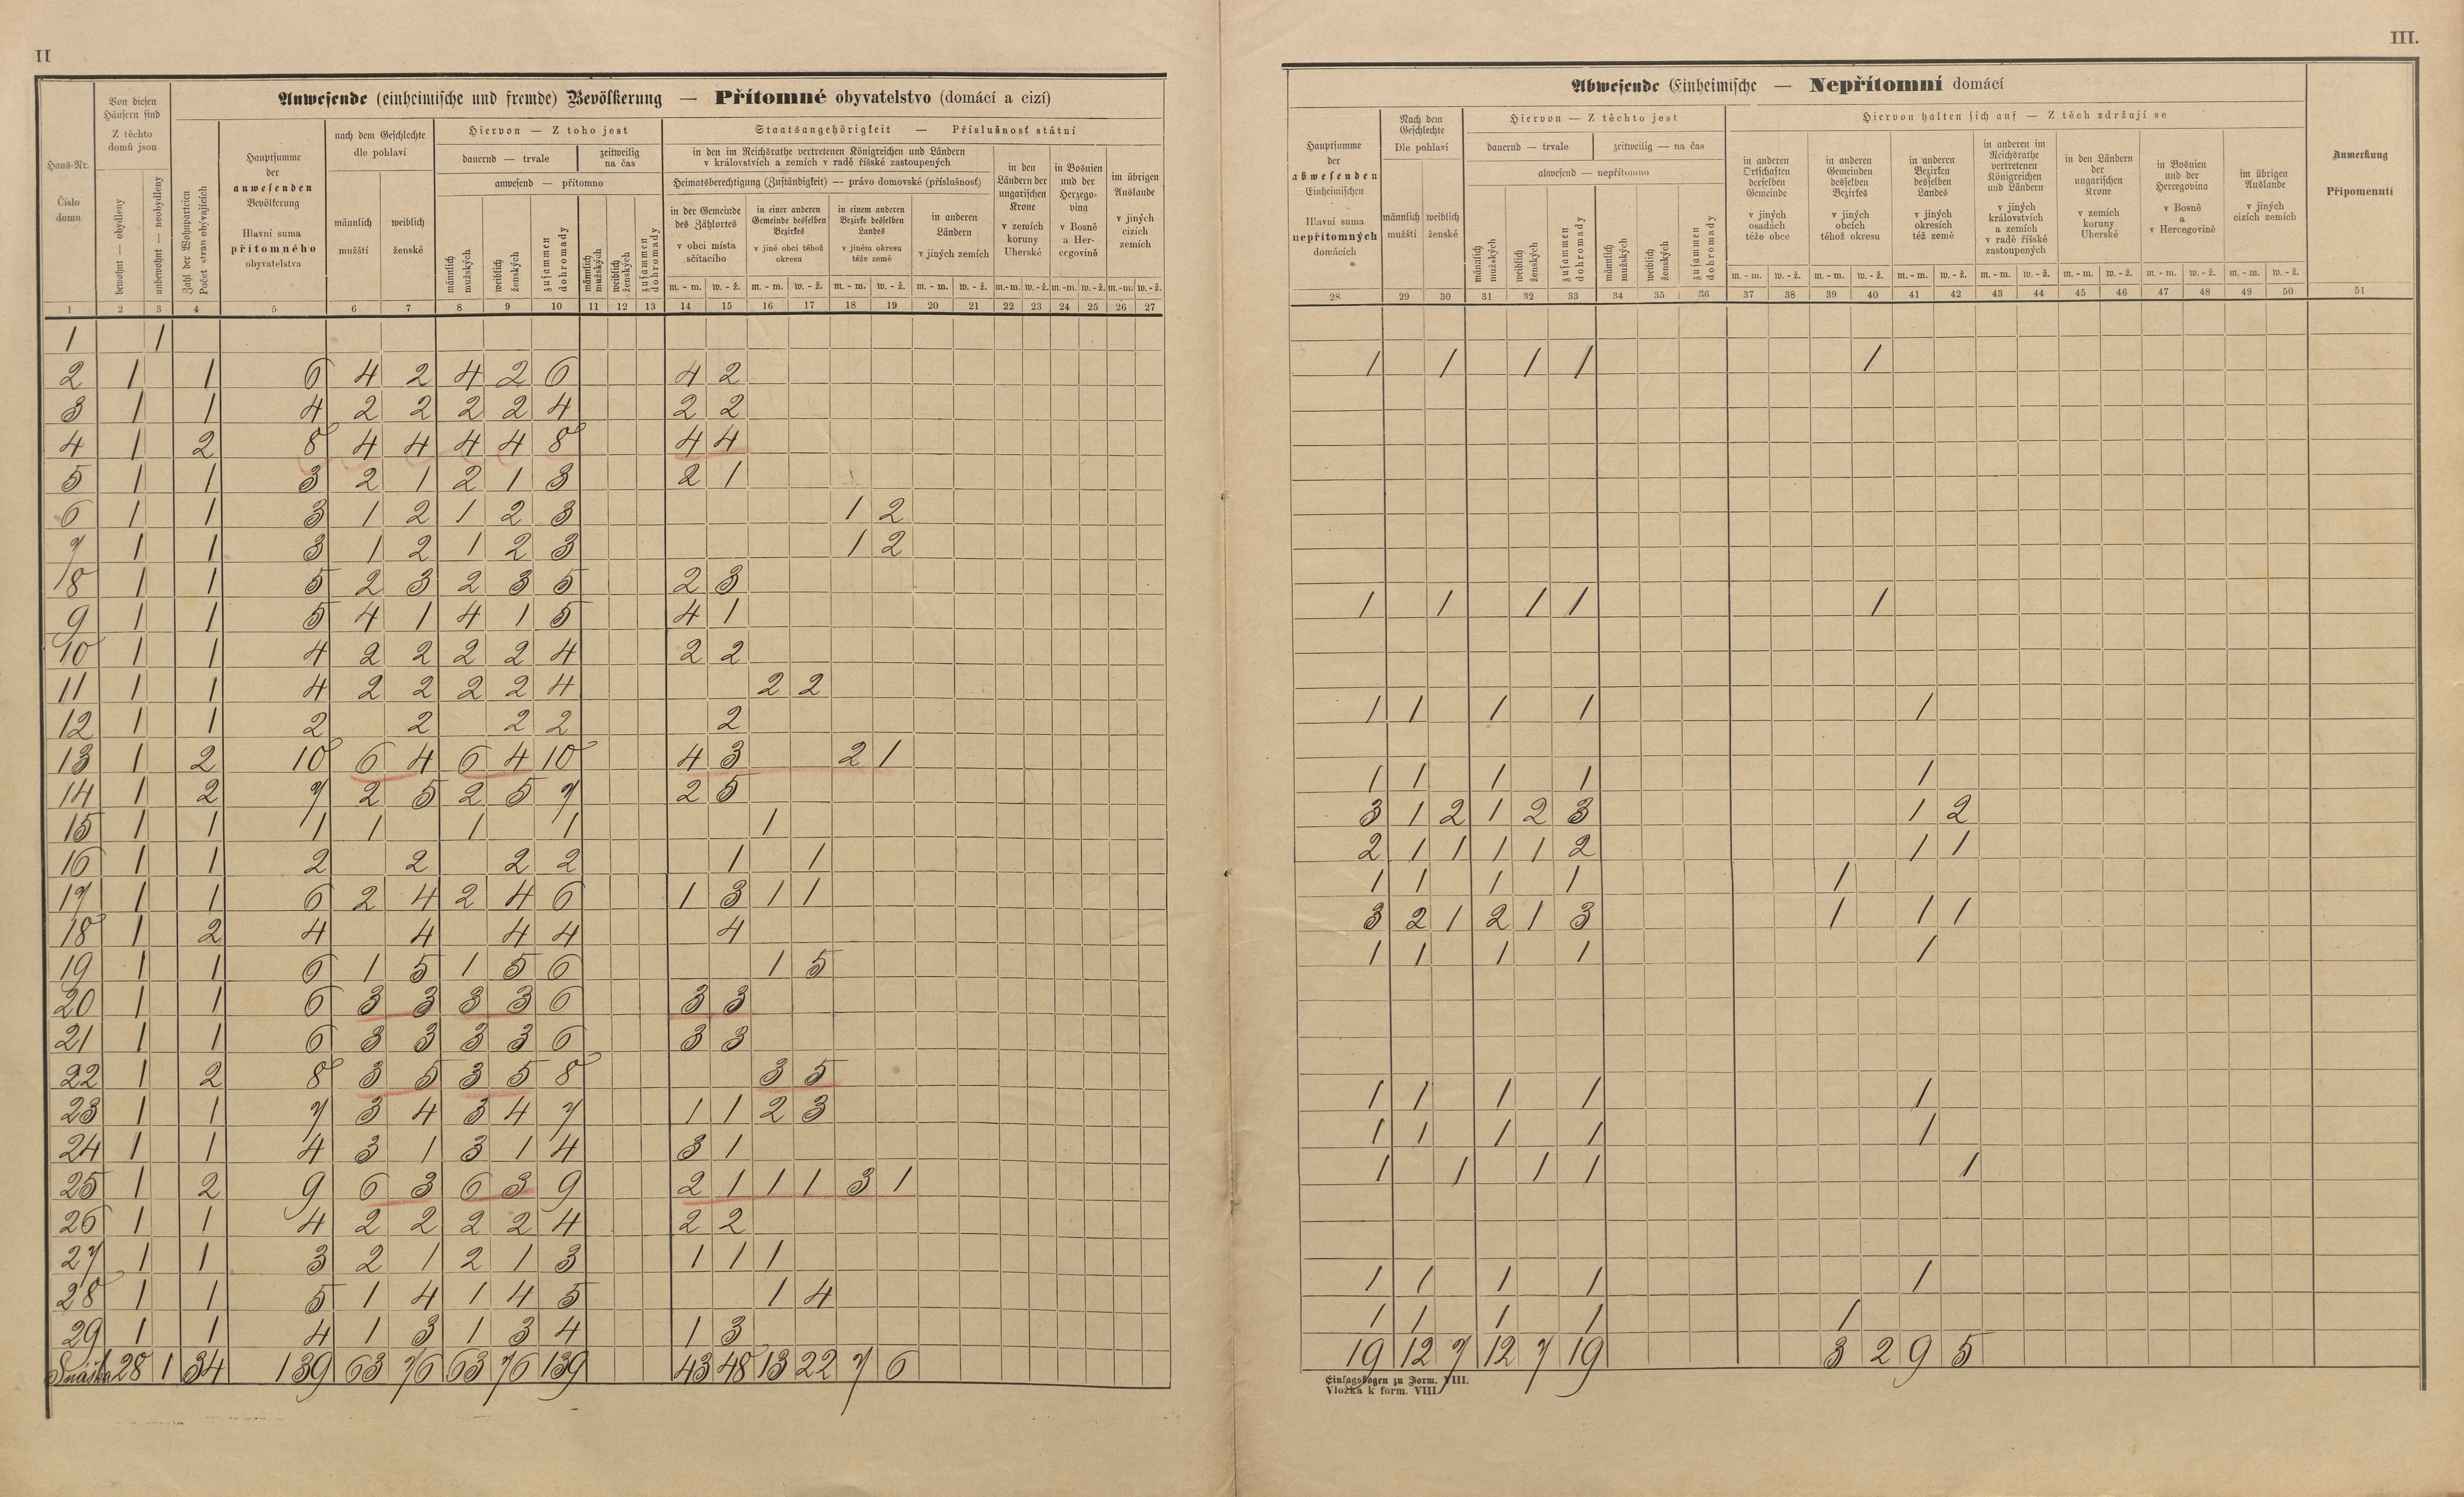 II
III.
Anwesende (einheimische und fremde) Bevölkerung — Přítomné obyvatelstvo (domácí a cizí)
Haus-Nr.
Číslo domu
Von diesen Häusern sind
Z těchto domů jsou
bewohnt — obydleny
unbewohnt — neobydleny
Zahl der Wohnparteien
Počet stran obývajících
Hauptsumme der anwesenden Bevölkerung
Hlavní suma přítomného obyvatelstva
nach dem Geschlechte
dle pohlaví
männlich mužští
weiblich ženské
Hiervon — Z toho jest
dauernd — trvale
zeitweilig na čas
anwesend — přítomno
männlich mužských
weiblich ženských
zusammen dohromady
männlich mužských
weiblich ženských
zusammen dohromady
Staatsangehörigkeit — Příslušnosť státní
in den im Reichsrathe vertretenen Königreichen und Ländern
v královstvích a zemích v radě říšské zastoupených
Heimatsberechtigung (Zuständigkeit) — právo domovské (příslušnosť)
in der Gemeinde des Zählortes
v obci místa sčítacího
in einer anderen Gemeinde desselben Bezirkes
v jiné obci téhož okresu
in einem anderen Bezirke desselben Landes
v jiném okresu téže země
in anderen Ländern
v jiných zemích
in den Ländern der ungarischen Krone
v zemích koruny Uherské
in Bosnien und der Herzegovina
v Bosně a Hercegovině
im übrigen Auslande
v jiných cizích zemích
m. - m. w. - ž. m. - m. w. - ž. m. - m. w. - ž. m. - m. w. - ž. m.-m. w.-ž. m.-m. w.-ž. m.-m. w.-ž.
1 2 3 4 5 6 7 8 9 10 11 12 13 14 15 16 17 18 19 20 21 22 23 24 25 26 27
1 1
2 1 1 6 4 2 4 2 6 4 2
3 1 1 4 2 2 2 2 4 2 2
4 1 2 8 4 4 4 4 8 4 4
5 1 1 3 2 1 2 1 3 2 1
6 1 1 3 1 2 1 2 3 1 2
7 1 1 3 1 2 1 2 3 1 2
8 1 1 5 2 3 2 3 5 2 3
9 1 1 5 4 1 4 1 5 4 1
10 1 1 4 2 2 2 2 4 2 2
11 1 1 4 2 2 2 2 4 2 2
12 1 1 2 2 2 2 2
13 1 2 10 6 4 6 4 10 4 3 2 1
14 1 2 7 2 5 2 5 7 2 5
15 1 1 1 1 1 1 1
16 1 1 2 2 2 2 1 1
17 1 1 6 2 4 2 4 6 1 3 1 1
18 1 2 4 4 4 4 4
19 1 1 6 1 5 1 5 6 1 5
20 1 1 6 3 3 3 3 6 3 3
21 1 1 6 3 3 3 3 6 3 3
22 1 2 8 3 5 3 5 8 3 5
23 1 1 7 3 4 3 4 7 1 1 2 3
24 1 1 4 3 1 3 1 4 3 1
25 1 2 9 6 3 6 3 9 2 1 1 1 3 1
26 1 1 4 2 2 2 2 4 2 2
27 1 1 3 2 1 2 1 3 1 1 1
28 1 1 5 1 4 1 4 5 1 4
29 1 1 4 1 3 1 3 4 1 3
28 1 34 139 63 76 63 76 139 43 48 13 22 7 6
Abwesende Einheimische — Nepřítomní domácí
Hauptsumme der abwesenden Einheimischen
Hlavní suma nepřítomných domácích
Nach dem Geschlechte
Dle pohlaví
männlich mužští
weiblich ženské
Hiervon — Z těchto jest
dauernd — trvale
zeitweilig — na čas
abwesend — nepřítomno
männlich mužských
weiblich ženských
zusammen dohromady
männlich mužských
weiblich ženských
zusammen dohromady
Hiervon halten sich auf — Z těch zdržují se
in anderen Ortschaften derselben Gemeinde
v jiných osadách téže obce
in anderen Gemeinden desselben Bezirkes
v jiných obcích téhož okresu
in anderen Bezirken desselben Landes
v jiných okresích též země
in anderen im Reichsrathe vertretenen Königreichen und Ländern
v jiných královstvích a zemích v radě říšské zastoupených
in den Ländern der ungarischen Krone
v zemích koruny Uherské
in Bosnien und der Hercegovina
v Bosně a v Hercegovině
im übrigen Auslande
v jiných cizích zemích
Anmerkung
Připomenutí
m. - m. w. - ž. m. - m. w. - ž. m. - m. w. - ž. m. - m. w. - ž. m. - m. w. - ž. m. - m. w. - ž. m. - m. w. - ž.
28 29 30 31 32 33 34 35 36 37 38 39 40 41 42 43 44 45 46 47 48 49 50 51
1 1 1 1 1
1 1 1 1 1
1 1 1 1 1
1 1 1 1 1
3 1 2 1 2 3 1 2
2 1 1 1 1 2 1 1
1 1 1 1 1
3 2 1 2 1 3 1 1 1
1 1 1 1 1
1 1 1 1 1
1 1 1 1 1
1 1 1 1 1
1 1 1 1 1
1 1 1 1 1
19 12 7 12 7 19 3 2 9 5
Einlagsbogen zu Form. VIII.
Vložka k form. VIII.